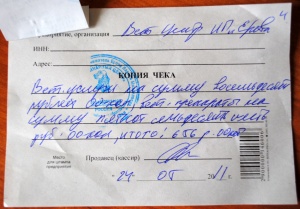 4
Предприятие, организация Вет. Центр ИП
ИНН:
Адрес:
КОПИЯ ЧЕКА
Вет. услуги на сумму восемьдесят
рублей 00 коп, вет. препараты на
сумму пятьсот семьдесят шесть
руб. 00 коп, итого: 656 р.
Место
для штампа
предприятия
Продавец (кассир)
24 05 2011 г.